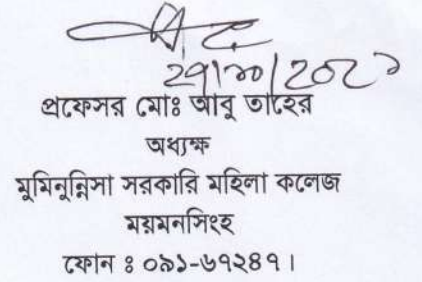 প্রফেসর মোঃ আবু তাহের
অধ্যক্ষ
মুমিনুন্নিসা সরকারি মহিলা কলেজ
ময়মনসিংহ
ফোন ঃ ০৯১-৬৭২৪৭।